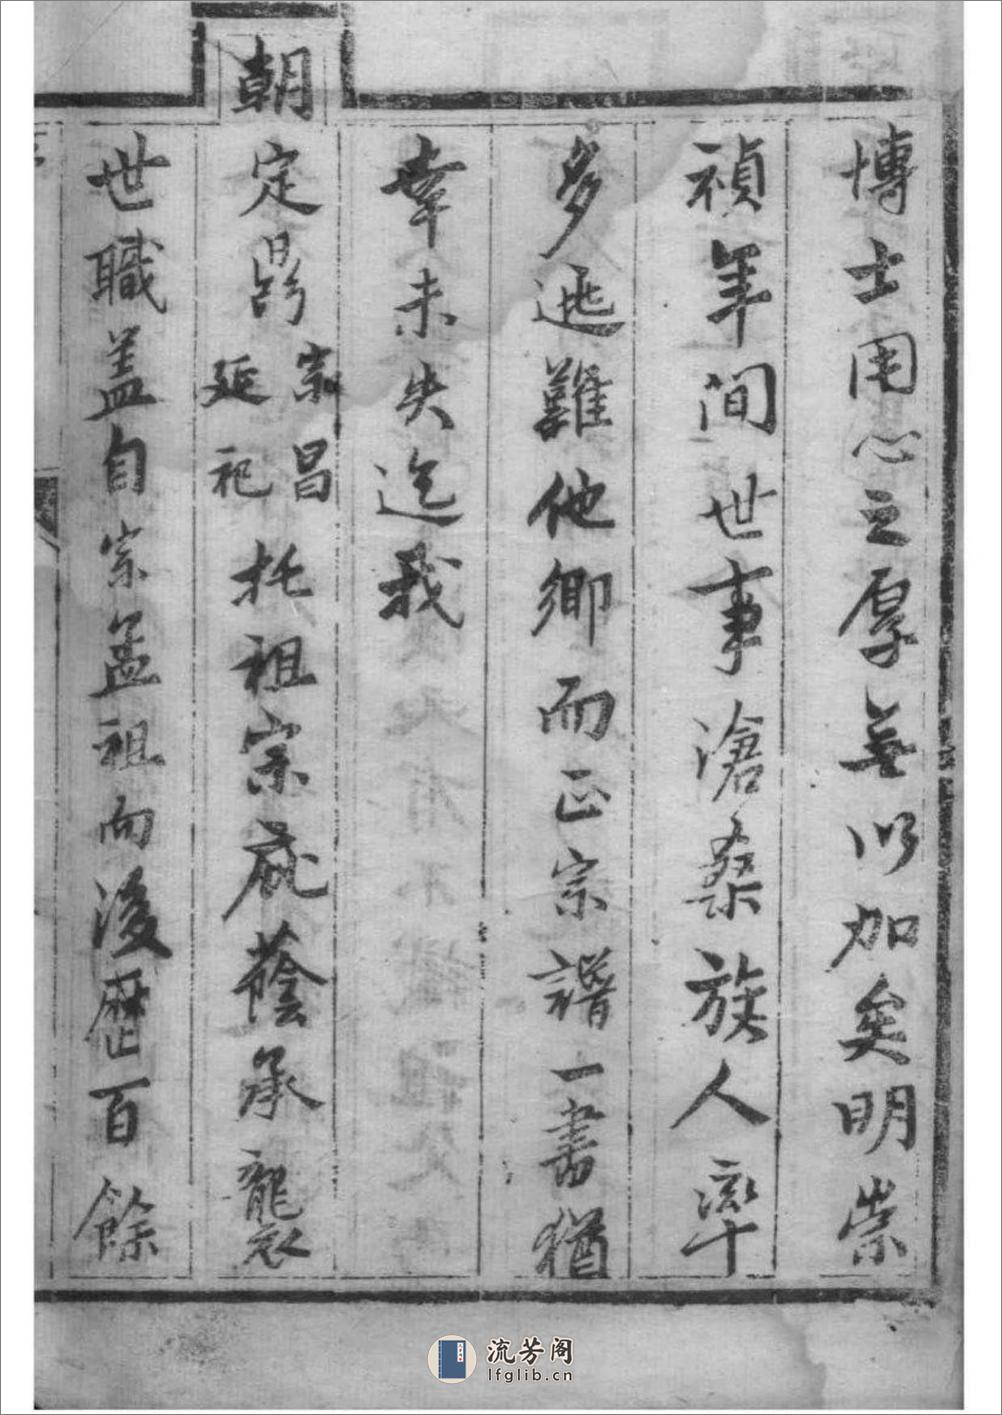 博士用心之厚無以加矣明崇
禎年间世事滄桑族人率
多逃難他鄉而正宗譜一書猶
幸未失迄我
朝定鼎宗昌延祀托祖宗威蔭承襲
世職盖自宗孟祖而後歷百餘
流芳阁
lfglib.cn